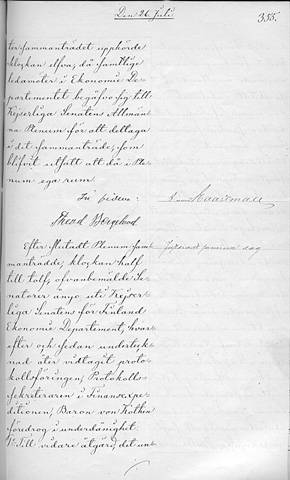 Den 26 Juli
355.
tersammanträdet upphörde
klockan elfva, då samtlige
ledamöter i Ekonomie De-
partementet begåfvo sig till
Kejserliga Senatens Allmän-
na Plenum för att deltaga
i det sammanträde, som
blifvit utsatt att då i Ple-
num ega rum.
In fidem:
Efter slutadt Plenum sam-
manträdde, klockan half
till tolf, ofvanbemälde Se-
natorer ånyo uti Kejser-
liga Senatens för Finland
Ekonomie Departement, hvar-
efter och sedan underteck-
nad åter vidtagit proto-
kollsföringen, Protokolls-
sekreteraren i Finansexpe-
ditionen, Baron von Kothen
föredrog i underdånighet
1o Till vidare åtgärd, det un-